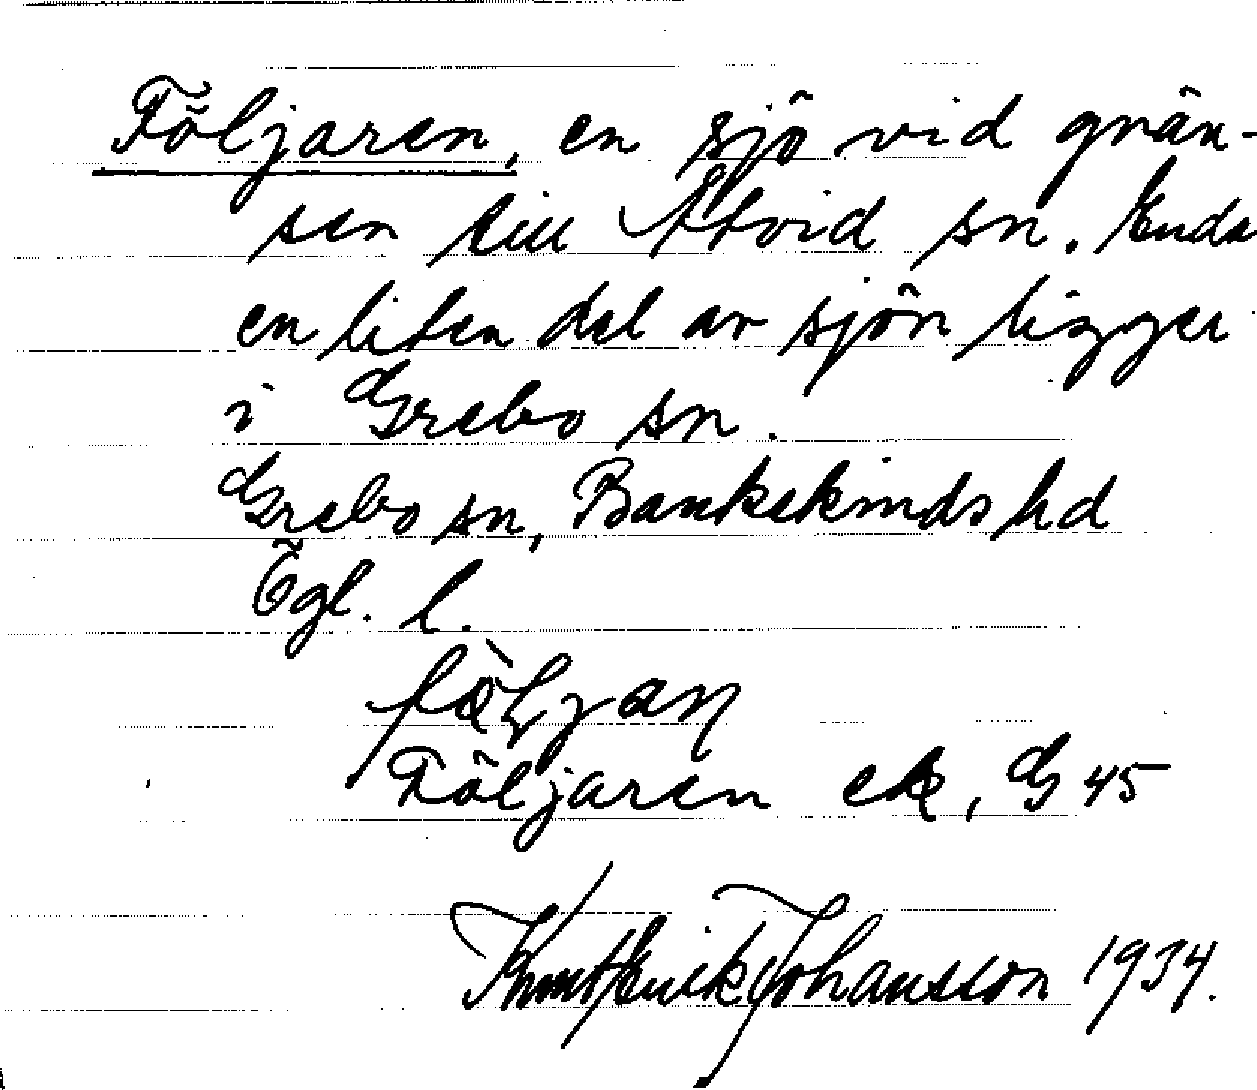 Följaren, en sjö vid grän-
sen till Åtvid sn. Enda
en liten del av sjön ligger
i Grebo sn.
Grebo sn, Bankekinds hd
Ögl. l.
Följaren ek, G 45
Knut Erik Johansson 1934.